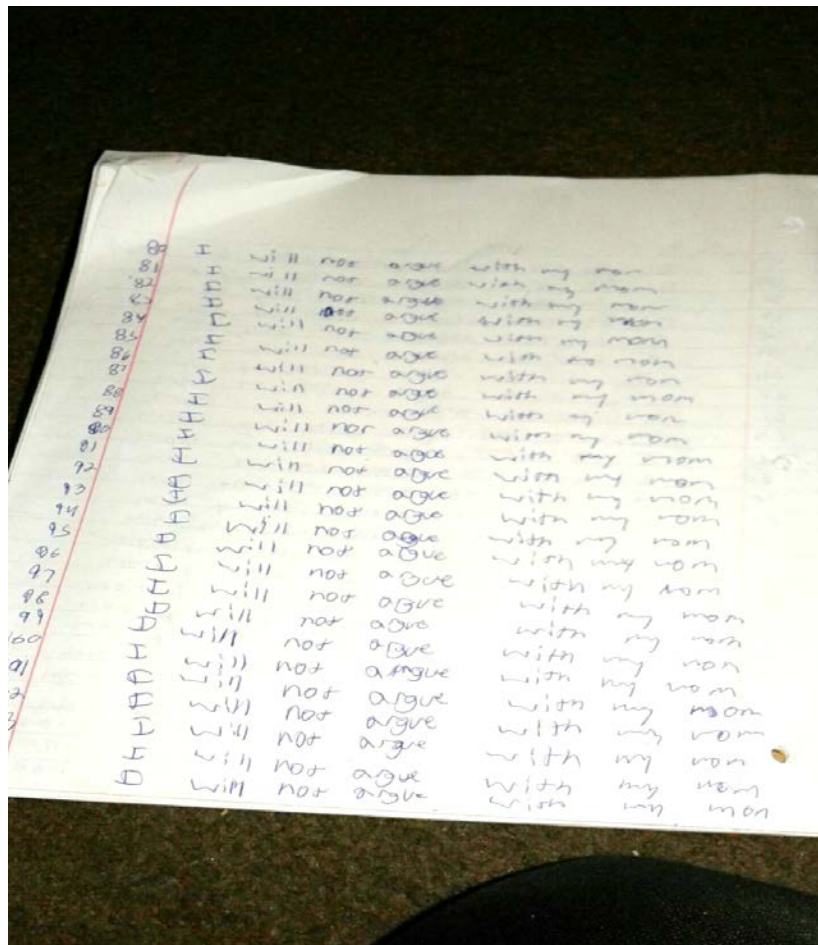 80 I will not argue with my mom
81 I will not argue with my mom
82 I will not argue with my mom
83 I will not argue with my mom
84 I will not argue with my mom
85 I will not argue with my mom
86 I will not argue with my mom
87 I will not argue with my mom
88 I will not argue with my mom
89 I will not argue with my mom
90 I will not argue with my mom
91 I will not argue with my mom
92 I will not argue with my mom
93 I will not argue with my mom
94 I will not argue with my mom
95 I will not argue with my mom
96 I will not argue with my mom
97 I will not argue with my mom
98 I will not argue with my mom
99 I will not argue with my mom
100 I will not argue with my mom
91 I will not argue with my mom
2 I will not argue with my mom
3 I will not argue with my mom